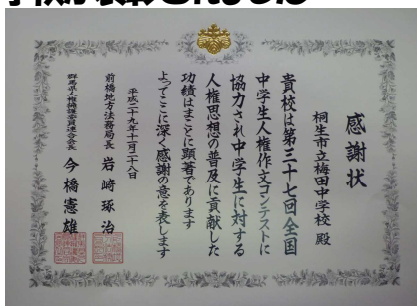 学校が表彰されました
感謝状
桐生市立梅田中学校 殿
貴校は第三十七回全国
中学生人権作文コンテストに
協力され中学生に対する
人権思想の普及に貢献した
功績はまことに顕著であります
よってここに深く感謝の意を表します
平成二十九年十二月二十八日
前橋地方法務局長 岩﨑琢治
群馬県人権擁護委員連合会長 今橋憲雄